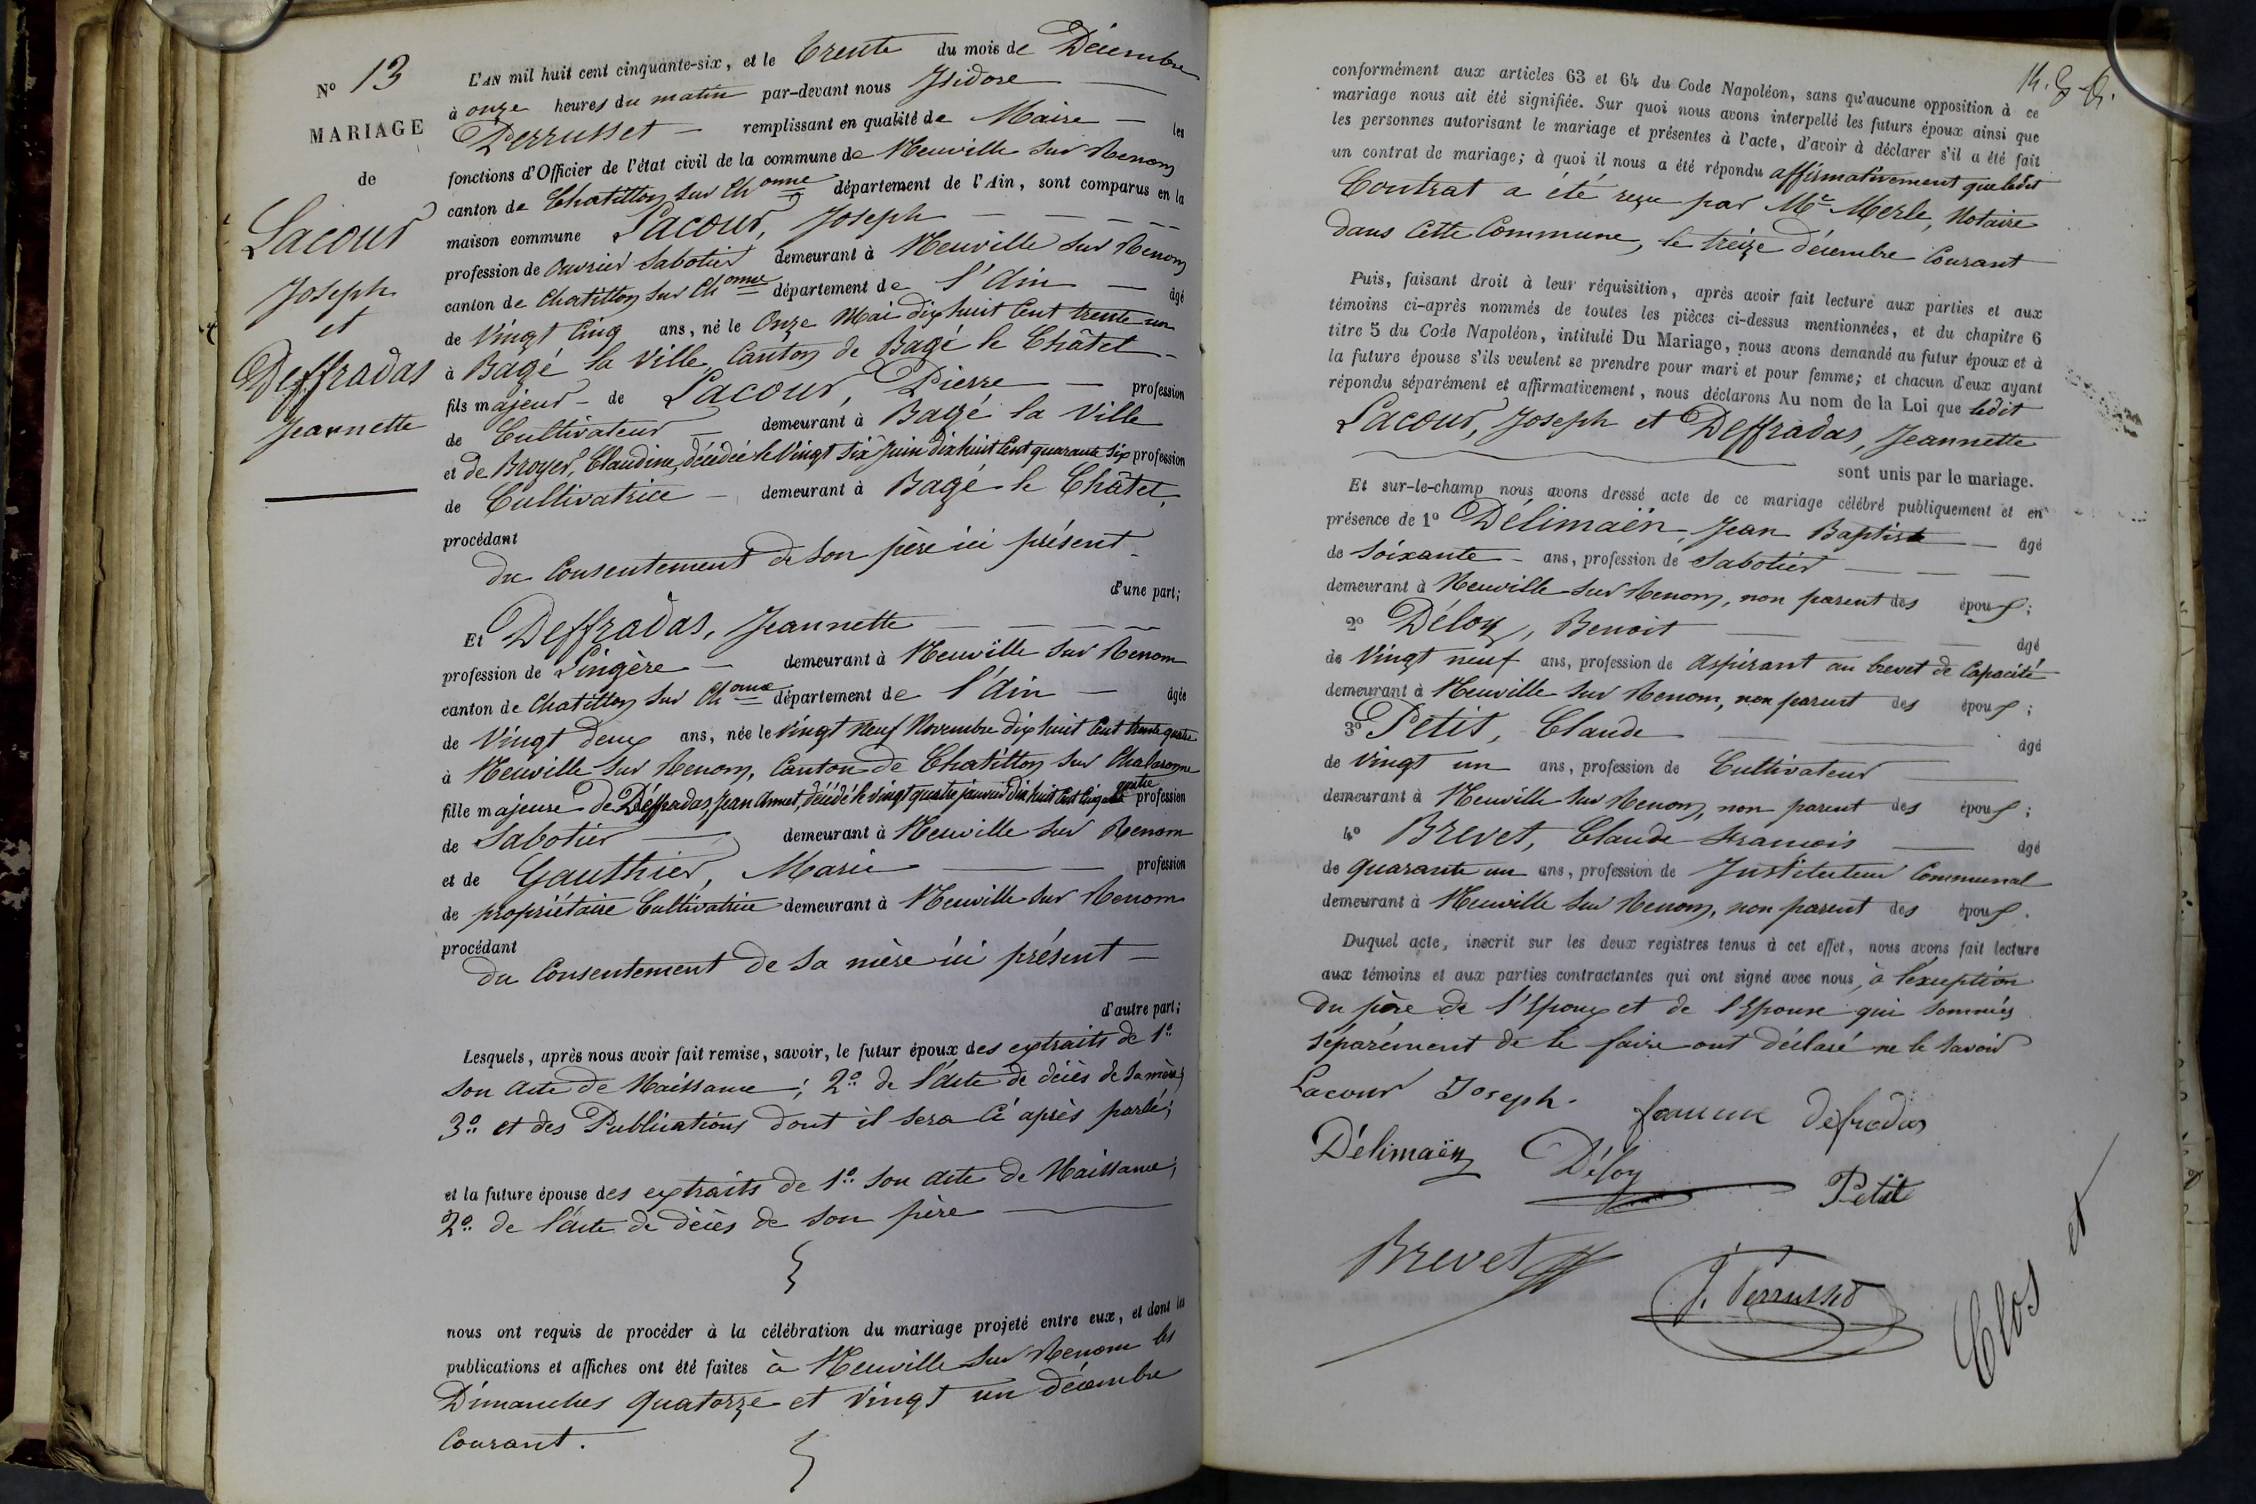 N° 13
MARIAGE
de
Lacour
Joseph
et
Deffradas
Jeannette
L'AN mil huit cent cinquante-six, et le trente du mois de Décembre
à onze heures du matin par-devant nous Isidore
Perrusset remplissant en qualité de Maire les
fonctions d'Officier de l'état civil de la commune de Neuville sur Renom
canton de Chatillon sur Chonne département de l'Ain, sont comparus en la
maison commune Lacour, Joseph
profession de ouvrier Sabotier demeurant à Neuville sur Renom
canton de Chatillon sur Chonne département de l'Ain âgé
de Vingt Cinq ans, né le Onze Mai dix huit Cent trente un
à Bagé la Ville, Canton de Bagé le Châtel
fils majeur de Lacour, Pierre profession
de Cultivateur demeurant à Bagé la Ville
et de Broyer, Claudine, décédée le Vingt Six Juin dix huit Cent quarante Six profession
de Cultivatrice demeurant à Bagé le Châtel,
procédant
du Consentement de Son père ici présent
d'une part;
Et Deffradas, Jeannette
profession de Lingère demeurant à Neuville sur Renom
canton de Chatillon sur Chonne département de l'Ain âgée
de Vingt deux ans, née le Vingt neuf Novembre dix huit Cent trente quatre
à Neuville sur Renom, Canton de Chatillon sur Chalaronne
fille majeure de Déffradas, Jean Annet, décédé le vingt quatre janvier dix huit Cent Cinquante quatre profession
de Sabotier demeurant à Neuville sur Renom
et de Gauthier, Marie profession
de propriétaire Cultivatrice demeurant à Neuville sur Renom
procédant
du Consentement de Sa mère ici présent
d'autre part;
Lesquels, après nous avoir fait remise, savoir, le futur époux des extraits de 1°
son acte de Naissance; 2° de l'acte de décès de Sa mère;
3° et des Publications dont il sera Ci après parlé;
et la future épouse des extraits de 1° son acte de Naissance;
2° de l'acte de décès de son père
nous ont requis de procéder à la célébration du mariage projeté entre eux, et dont les
publications et affiches ont été faites à Neuville sur Renom les
Dimanches quatorze et vingt un décembre
Courant.
conformément aux articles 63 et 64 du Code Napoléon, sans qu'aucune opposition à ce
mariage nous ait été signifiée. Sur quoi nous avons interpellé les futurs époux ainsi que
les personnes autorisant le mariage et présentes à l'acte, d'avoir à déclarer s'il a été fait
un contrat de mariage; à quoi il nous a été répondu affirmativement que ledit
Contrat a été reçu par Me Merle, Notaire
dans Cette Commune, le treize décembre Courant
Puis, faisant droit à leur réquisition, après avoir fait lecture aux parties et aux
témoins ci-après nommés de toutes les pièces ci-dessus mentionnées, et du chapitre 6
titre 5 du Code Napoléon, intitulé Du Mariage, nous avons demandé au futur époux et à
la future épouse s'ils veulent se prendre pour mari et pour femme; et chacun d'eux ayant
répondu séparément et affirmativement, nous déclarons Au nom de la Loi que ledit
Lacour, Joseph et Deffradas, Jeannette
sont unis par le mariage.
Et sur-le-champ nous avons dressé acte de ce mariage célébré publiquement et en
présence de 1° Délimaën, Jean Baptiste âgé
de Soixante ans, profession de Sabotier
demeurant à Neuville sur Renom, non parent des époux;
2° Déloy, Benoit âgé
de Vingt neuf ans, profession de Aspirant au brevet de Capacité
demeurant à Neuville sur Renom, non parent des époux;
3° Petit, Claude âgé
de Vingt un ans, profession de Cultivateur
demeurant à Neuville sur Renom, non parent des époux;
4° Brevet, Claude François âgé
de quarante un ans, profession de Instituteur Communal
demeurant à Neuville sur Renom, non parent des époux.
Duquel acte, inscrit sur les deux registres tenus à cet effet, nous avons fait lecture
aux témoins et aux parties contractantes qui ont signé avec nous, à l'exception
du père de l'Epoux et de l'Epouse qui sommés
séparément de le faire ont déclaré ne le savoir
Lacour Joseph.
defradas
Délimaën Déloy
Petit
Brevet
J. Perrusset
Clos et